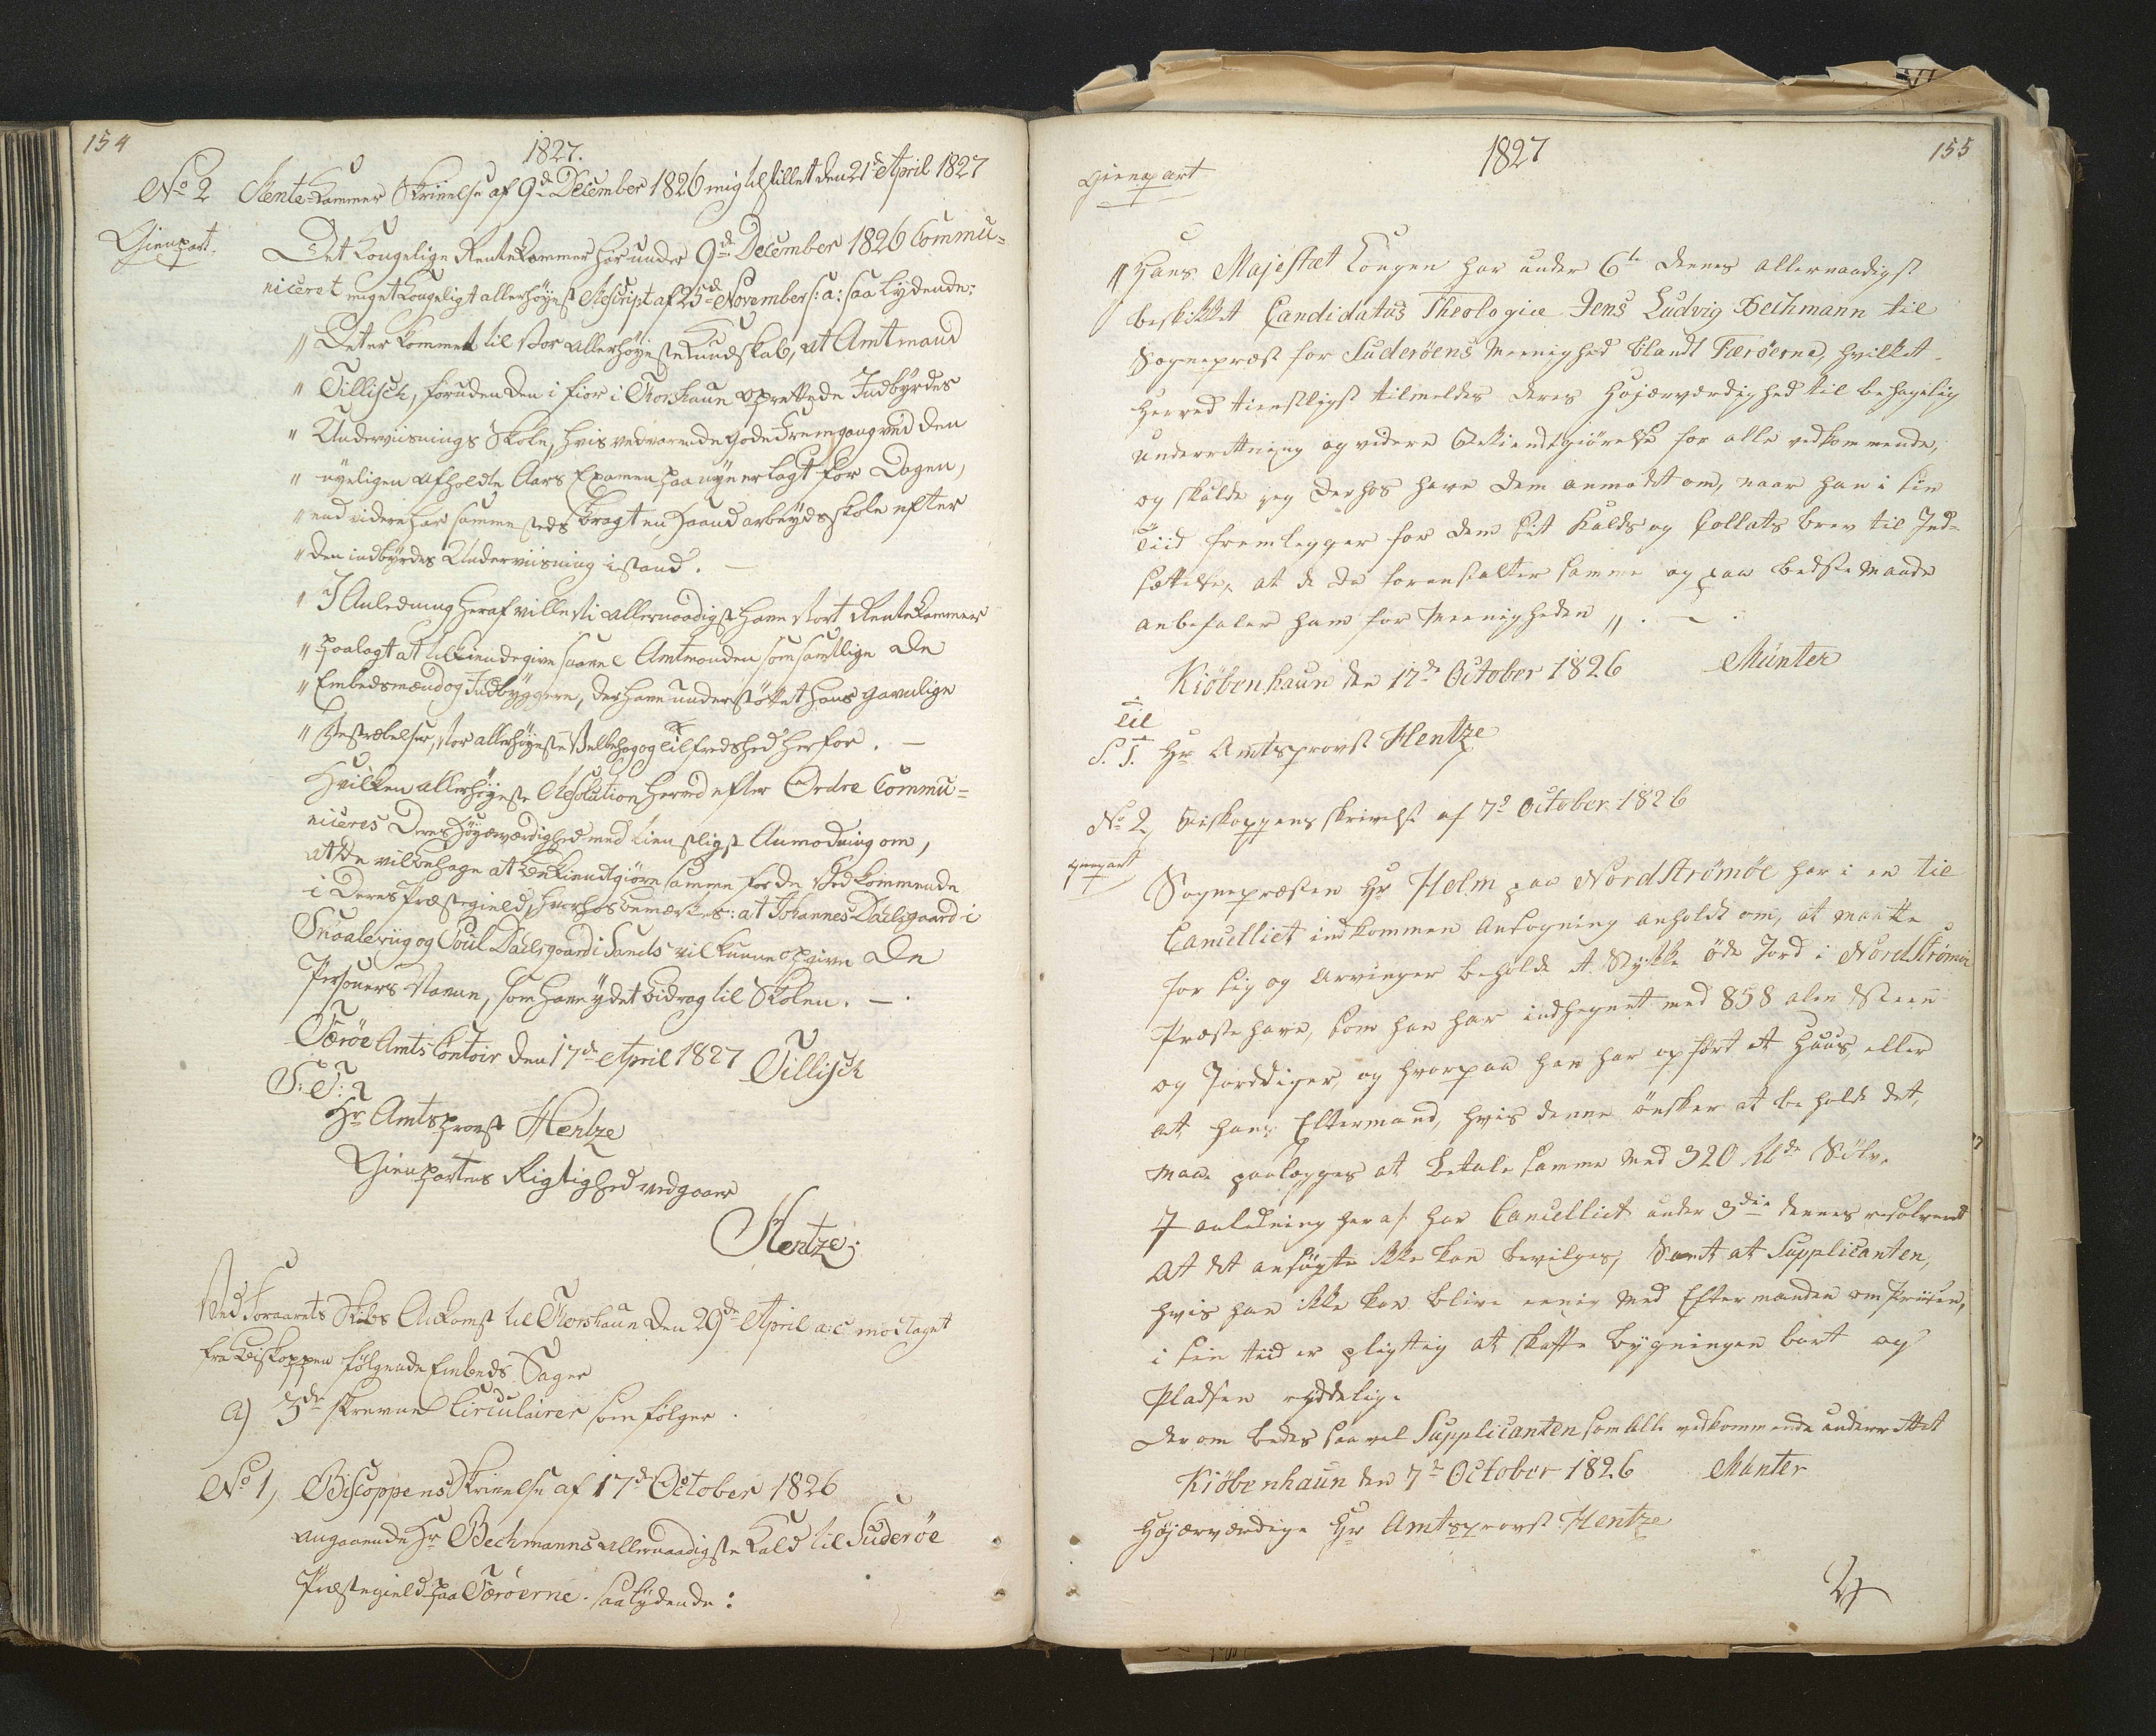 154
1827.
No 2 Rente-Kammer Skrivelse af 9de December 1826 mig tilstillet den 21de April 1827
Gienpart.
Det Kongelige RenteKammer har under 9de December 1826 Commu=
niceret mig et Kongeligt allerhøyest Rescript af 25de November s: a: saa lydende:
" Det er kommet til Vor allerhøyeste Kundskab, at Amtmand
" Tillisch, foruden den i fior i Thorshaun oprettede Indbyrdes
" Underviisnings Skole, hvis vedvarende gode Fremgang ved den
" nyeligen afholdte Aars Examen paa nye er lagt for Dagen,
" end videre har sammesteds bragt en Haandarbeydsskole efter
" den indbyrdes Underviisning istand. —
" I Anledning heraf ville Vi allernaadigst have Vort RenteKammer
" paalagt at tilkiendegive saavel Amtmanden som samtlige de
" Embedsmænd og Indbyggere, der have understøttet hans gavnlige
" Bestræbelser, Vor allerhøyeste Velbehag og Tilfredshed herfor. —
Hvilken allerhøyeste Resolution herved efter Ordre Commu=
niceres Deres Høyærværdighed med tienstligst Anmodning om,
at De vil behage at bekiendtgiøre samme for de Vedkommende
i Deres Præstegield, hvorhos bemærkes: at Johannes Dalsgaard i
Skaalevig og Poul Dalsgaard i Sands vil kunne opgive de
Personers Navne, som have ydet bidrag til Skolen. —.
Færøe Amts Contoir den 17de April 1827 Tillisch
S: T:
Hr Amtsprovst Hentze
Gienpartens Rigtighed vedgaaer
Hentze;
Ved Foraarets Skibs Ankomst til Thorshaun den 29de April a: c: modtaget
fra Biskoppen følgende Embeds Sager
a) 3de skrevne Circulairer som følger.
No 1, Biscoppens Skrivelse af 17de October 1826
angaaende Hr Bechmanns allernaadigste Kald til Suderøe
Præstegield paa Færøerne. saa lydende:
1827
155
Gienpart
" Hans Majestæt Kongen har under 6te dennes allernaadigst
beskikket Candidatus Theologiæ Jens Ludvig Bechmann til
Sognepræst for Suderøens Meenighed blandt Færøerne, hvilket
herved tienstligst tilmeldes Deres Højærværdighed til behagelig
Underretning og videre Bekiendtgiørelse for alle vedkommende,
og skulde jeg derhos have dem anmodet om, naar han i sin
Tiid fremlegger for dem sit Kalds og Collats brev til Ind-
sættelse, at de da foranstalter samme og paa bedste Maade
anbefaler ham for Meenigheden ". — .
Kiöbenhaun den 17de October 1826 Münter
Til
S. T. Hr Amtsprovst Hentze
No 2, Biskoppens skrivelse af 7de October 1826
Gienpart
Sognepræsten Hr Holm paa Nordstrømøe har i en til
Cancelliet indkommen Ansøgning anholdt om, at maatte
for sig og Arvinger beholde et Stykke øde Jord i Nordstrømöe
Præstehave, som han har indhegnet med 858 alen Steen
og Jorddiger, og hvorpaa han har opført et Huus, eller
at hans Eftermand, hvis denne ønsker at beholde det,
maa paalægges at betale samme med 320 Rbd Sölv.
I anledning heraf har Cancelliet under 3die dennes resolveret
At det ansøgte ikke kan bevilges, Samt at Supplicanten,
hvis han ikke kan blive eenig med Eftermanden om Prisen,
i sin tiid er pligtig at skaffe bygningen bort og
Pladsen ryddelig.
Der om bedes saavel Supplicanten som Alle vedkommende underrettet
Kiöbenhaun den 7de October 1826 Münter
Højærværdige Hr Amtsprovst Hentze